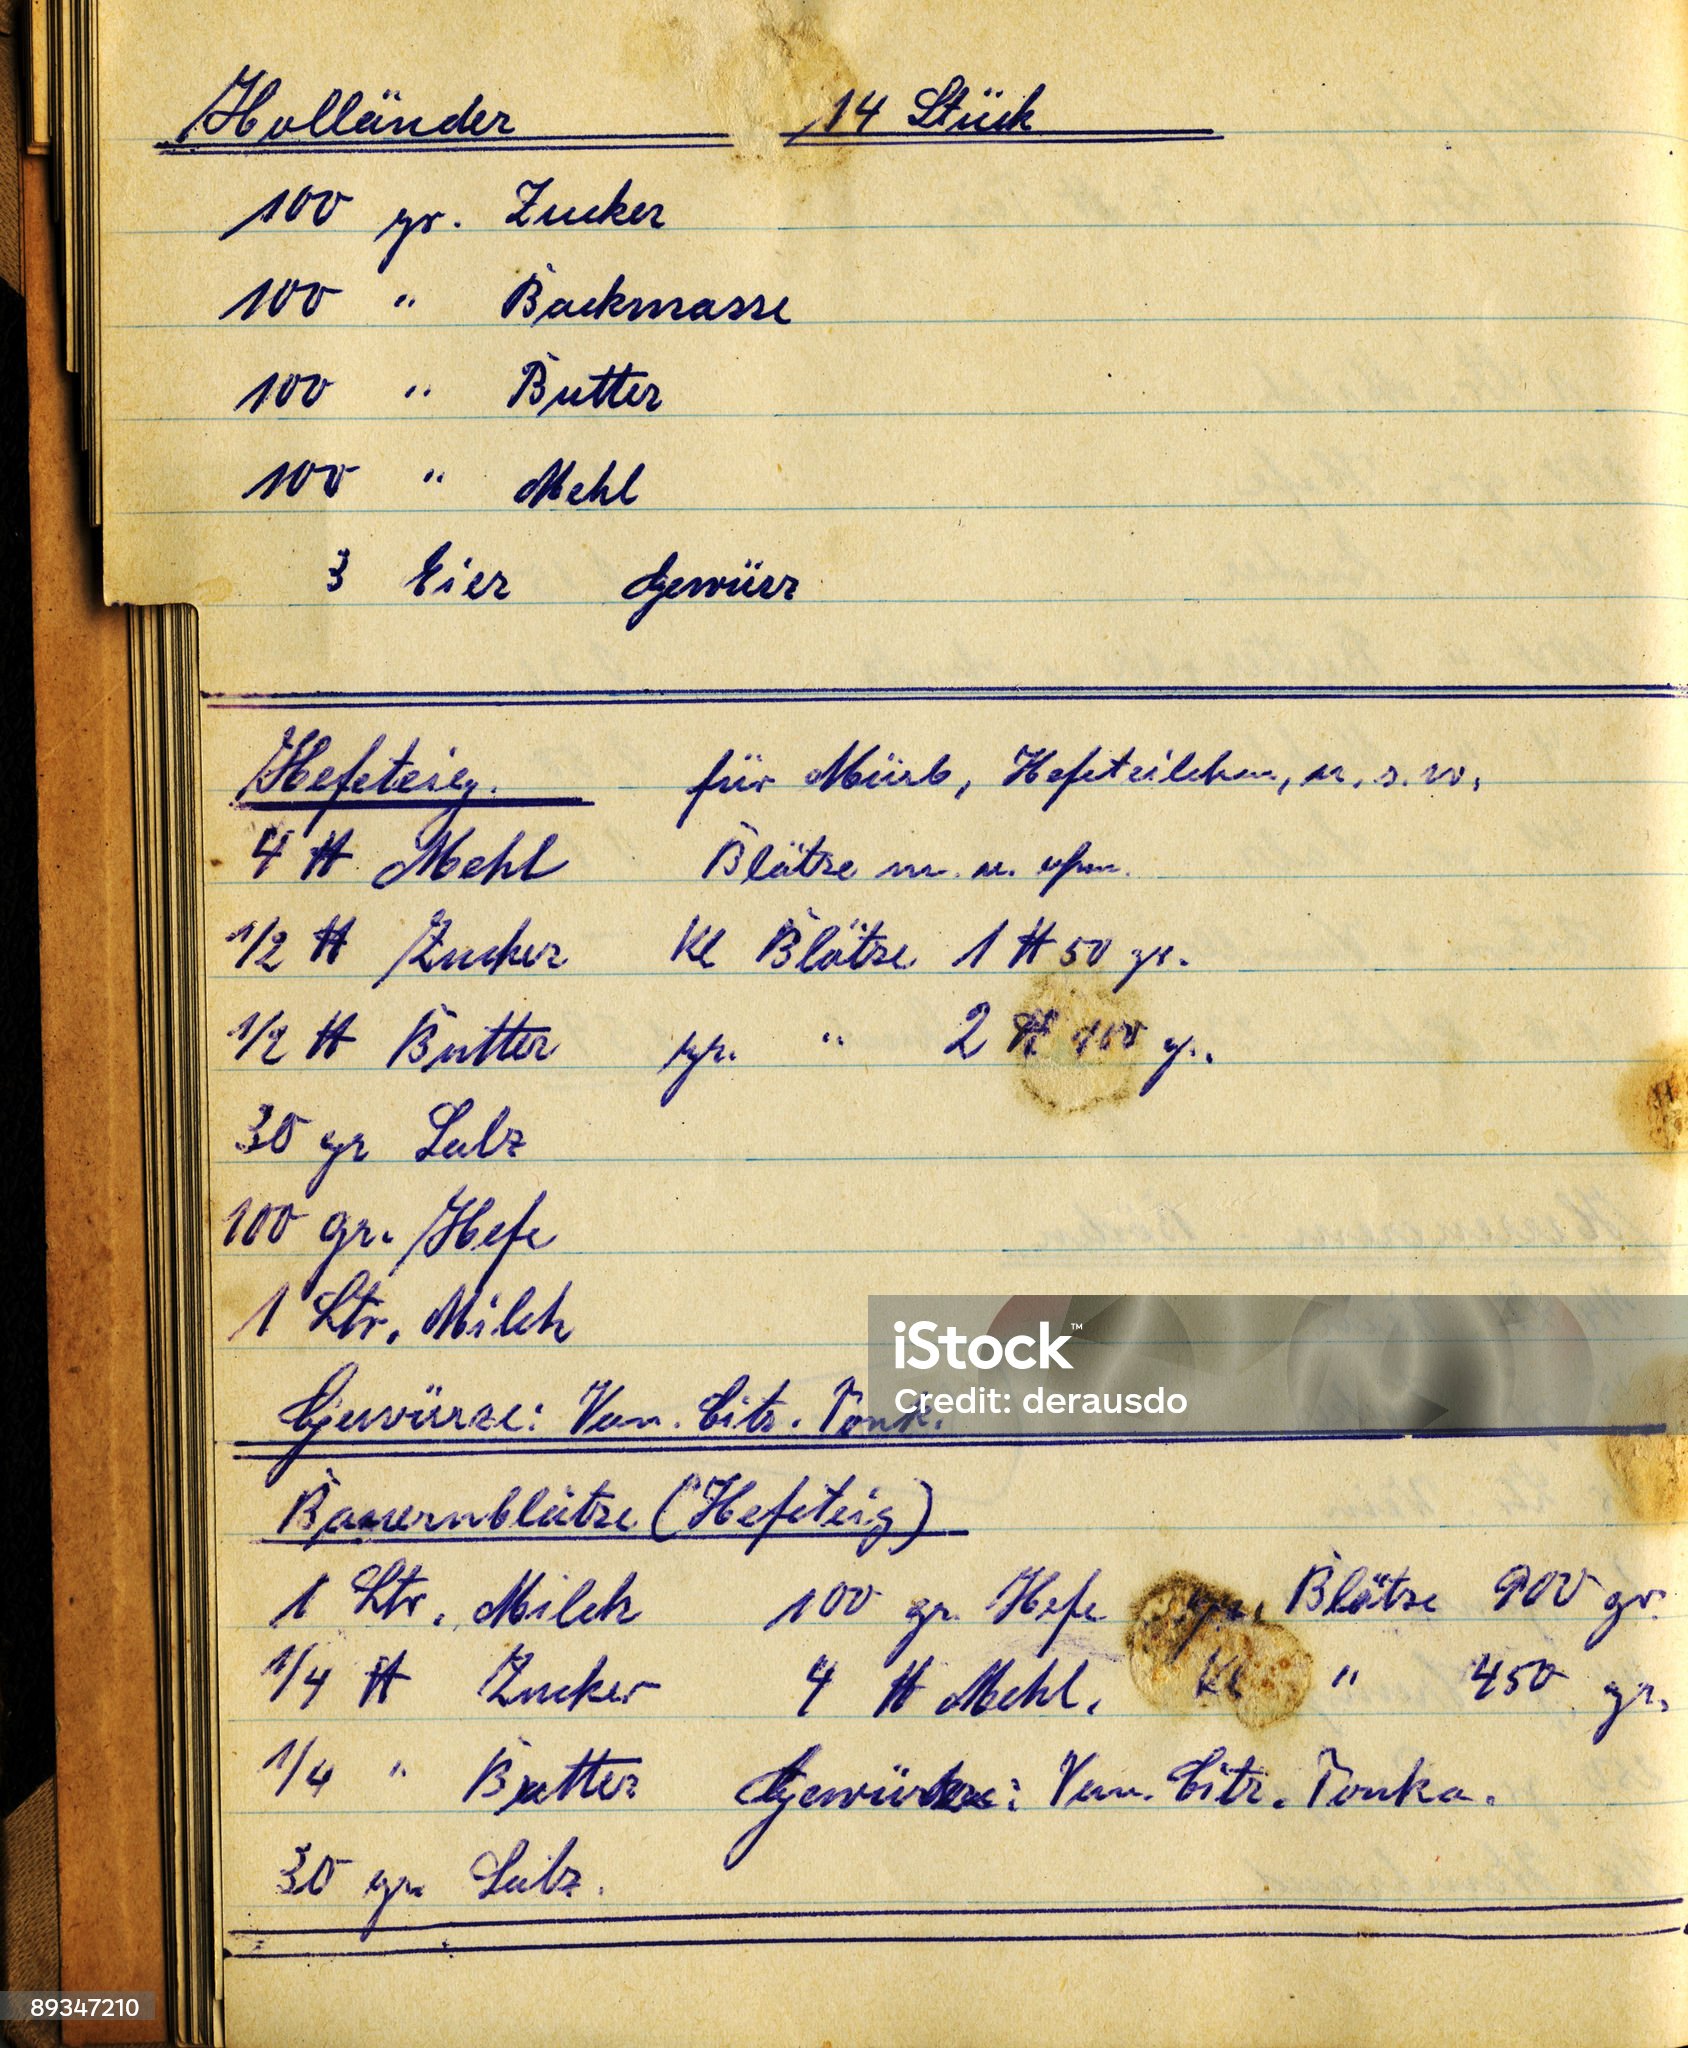 Holländer 14 Stück
100 gr. Zucker
100 " Backmasse
100 " Butter
100 " Mehl
3 Eier Gewürz
Hefeteig. für Mürb, Hefeteilchen, u. s. w.
4 ℔ Mehl Blätze m. u.
1/2 ℔ Zucker Kl Blätze 1 ℔ 50 gr.
1/2 ℔ Butter gr. " 2 ℔ 100 g.
30 gr Salz
100 gr. Hefe
1 Ltr. Milch
Gewürze: Van. Citr. Tonk.
Bauernblätze (Hefeteig)
1 Ltr. Milch 100 gr. Hefe gr. Blätze 900 gr.
1/4 ℔ Zucker 4 ℔ Mehl. Kl " 450 gr.
1/4 " Butter Gewürze: Van. Citr. Tonka.
30 gr. Salz.
iStock™
Credit: derausdo
89347210